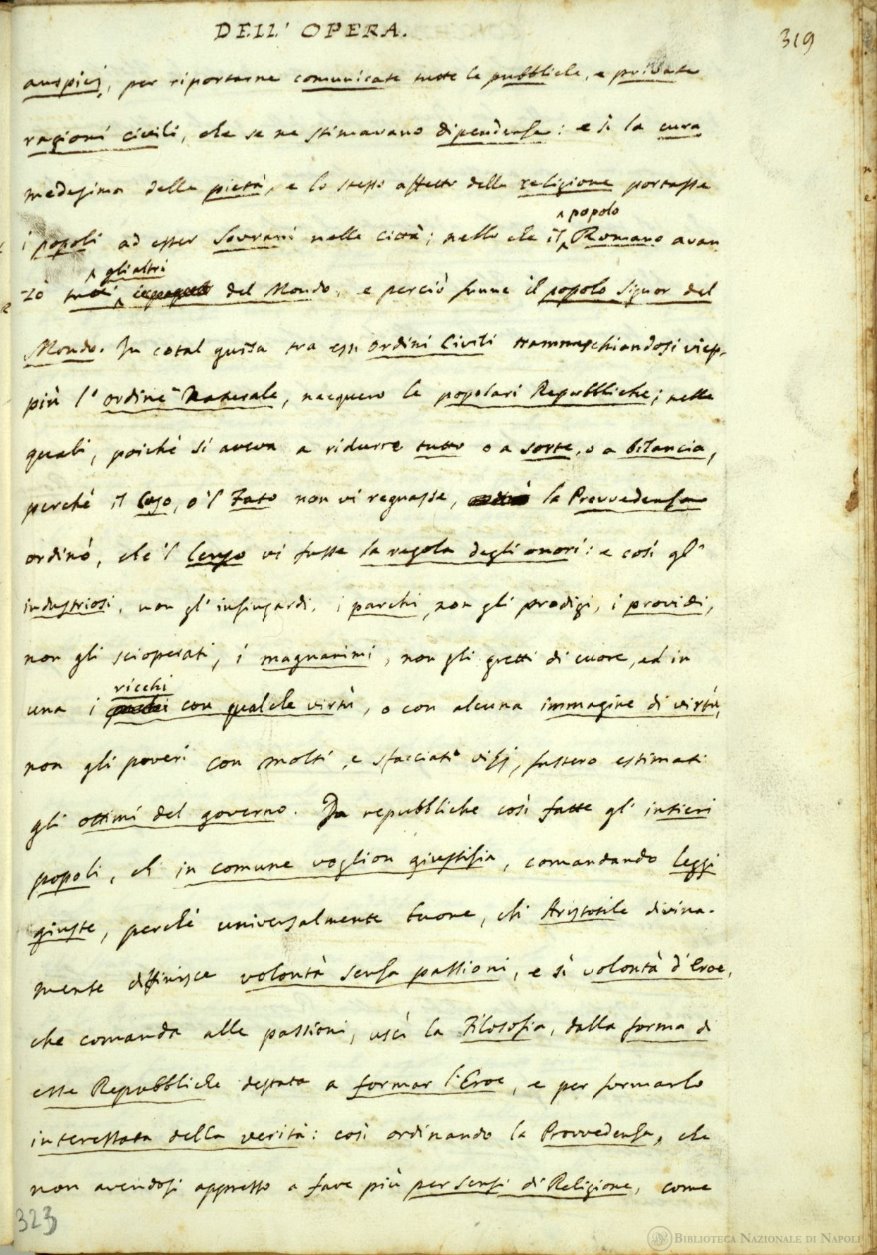 DELL' OPERA.
319
auspicj, per riportarne comunicate tutte le pubbliche, e private
ragioni civili, che se ne stimavano dipendenze: e sì la cura
medesima della pietà, e lo stesso affetto della religione portasse
i popoli ad esser Sovrani nelle città; nello che il popolo Romano avan
zò tutti gli altri del Mondo, e perciò funne il popolo Signor del
Mondo. In cotal guisa tra essi ordini Civili trammeschiandosi viep-
più l'ordine Naturale, nacquero le popolari Repubbliche; nelle
quali, poiché si aveva a ridurre tutto o a sorte, o a bilancia,
perché il Caso, o 'l Fato non vi regnasse, la Provvedenza
ordinò, che 'l Censo vi fusse la regola degli onori: e così gl'
industriosi, non gl' infingardi, i parchi, non gli prodigi, i providi,
non gli scioperati, i magnanimi, non gli gretti di cuore, ed in
una i ricchi con qualche virtù, o con alcuna immagine di virtù,
non gli poveri con molti, e sfacciati vizj, fussero estimati
gli ottimi del governo. Da repubbliche così fatte gl' intieri
popoli, ch' in comune voglion giustizia, comandando leggi
giuste, perché universalmente buone, ch' Aristotile divina-
mente diffinisce volontà senza passioni, e sì volontà d'Eroe,
che comanda alle passioni, uscì la Filosofia, dalla forma di
esse Repubbliche destata a formar l'Eroe, e per formarlo
interessata della verità: così ordinando la Provvedenza, che
non avendosi appresso a fare più per sensi di Religione, come
323
BIBLIOTECA NAZIONALE DI NAPOLI